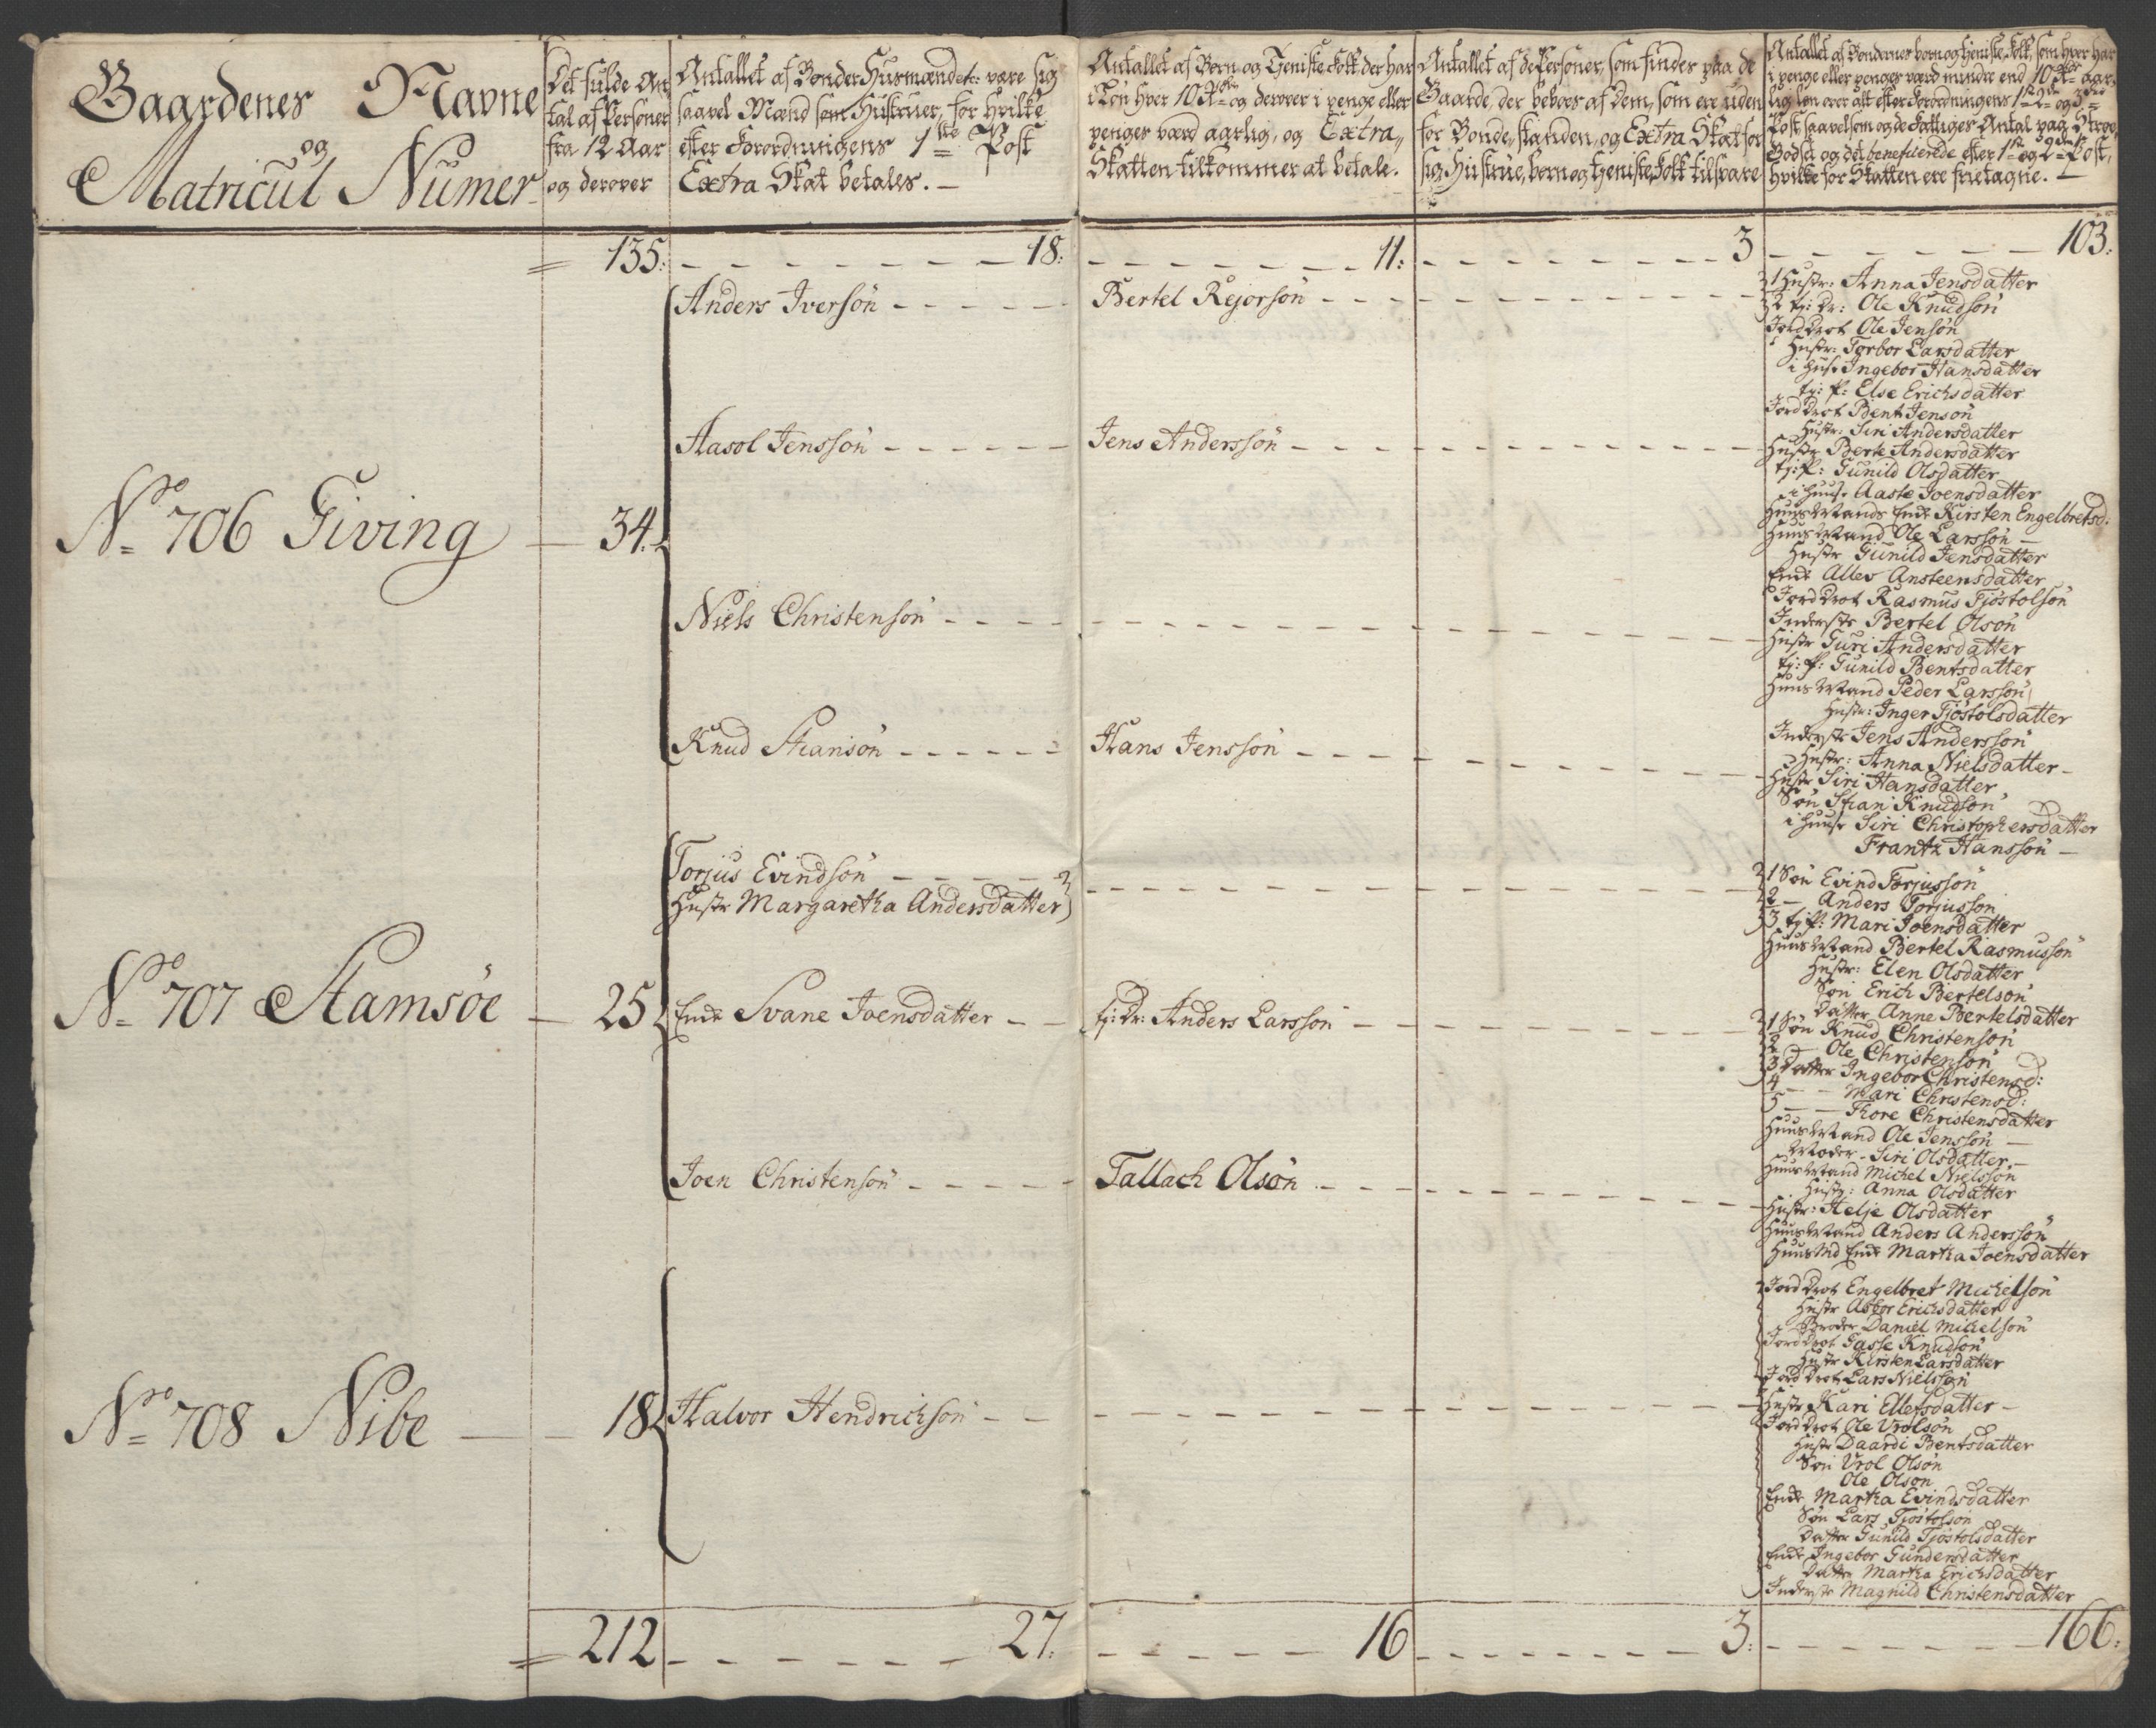 Gaardenes Navne
og
Matricul Numer
Det fulde An
tal af Persôner
fra 12 Aar
og derover
Antallet af Bønder Husmænd etc: være sig
saavel Mænd som Hustruer, for hvilke
efter Forordningens 1ste Post
Extra Skat betales. –
Antallet af Børn og Tjeniste Folk der har
i Løn hver 10 Rdr og derover i penge eller
penges værd aarlig, og Extra
Skatten tilkommer at betale.
Antallet af de Persôner, som findes paa de
Gaarde, der beboes af Dem, som ere uden
for Bonde standen, og Extra Skat for
sig, Hustrue, børn og tjeniste Folk tilsvare
Antallet af Bøndernes børn og tjeniste Folk, som hver har
i penge eller penges værd mindre end 10 Rdr aar,
lig løn over alt efter Forordningens 1ste 2den og 3die
Post saavelsom og de Fattiges Antal paa Strøe
Godset og det beneficerede efter 1ste og 2den Post,
hvilke for Skatten ere frietagne. –
= 135: – – – – – – – 18: – – – – – – – 11: – – – – – – – 3 – – – – – – 103:
No 706 Giving – 34:
Anders Iversön – – – –
Aasol Jenssön – – – –
Niels Christensön – – – –
Knud Stiansön – – – –
Bertel Rejersön – – – –
Jens Anderssön – – – –
Hans Jenssön – – – –
1 Hustr: Anna Jensdatter
2 tj: Dr: Ole Knudsön
Jorddrot Ole Jensön
Hustr: Torbor Larsdatter
i Huse Ingebor Hansdatter
tj: P: Else Erichsdatter
Jorddrot Bent Jensön
Hustr: Siri Andersdatter
Hustr Berte Andersdatter
tj: P: Gunild Olsdatter
i Huuse Aaste Joensdatter
Huus Mands Enke Kirsten Engelbretsd:
Huus Mand Ole Larssön –
Hustr Gunild Jensdatter
Enke Allev Ansteensdatter
Jorddrot Rasmus Tjöstolsön
Inderste Bertel Olsön
Hustr Guri Andersdatter
tj: P: Gunild Bentsdatter
Huus Mand Peder Larssön
Hustr: Inger Tjöstolsdatter
Inderste Jens Anderssön
Hustr: Anna Nielsdatter –
Hustr Siri Hansdatter
Sön Stian Knudsön
i Huuse Siri Christophersdatter
Frantz Hanssön –
No 707 Stamsöe – 25
Torjus Evindsön – – – –
Hustr Margaretha Andersdatter
Enke Svane Joensdatter – –
Joen Christensön – – – –
tj: Dr: Anders Larssön – –
Tallach Olsön – – –
1 Sön Evind Torjussön
2 – Anders Torjussön
3 tj P: Mari Joensdatter
Huus Mand Bertel Rasmussön
Hustr: Elen Olsdatter
Sön Erich Bertelsön
Datter Anne Bertelsdatter
1 Sön Knud Christensön
2 – Ole Christensön
3 Datter Ingebor Christensd:
4 – – Mari Christensd:
5 – – Tore Christensdatter
Huus Mand Ole Jenssön –
Moder – Siri Olsdatter –
Huus Mand Michel Nielssön
Hustr: Anna Olsdatter
Hustr: Helje Olsdatter
Huus Mand Anders Anderssön
Huus Md Enke Martha Joensdatter
No 708 Nibe – – 18
Halvor Hendrichsön – –
Jorddrot Engelbret Michelsön
Hustr Asbor Erichsdatter
Broder Daniel Michelsön
Jorddrot Tasse Knudsön
Hustr Kirsten Larsdatter
Jorddrot Lars Nielssön
Hustr Kari Ellefsdatter –
Jorddrot Ole Vrolsön
Hustr Daardi Bentsdatter
Sön Vrol Olsön
Ole Olsön
Enke Martha Evindsdatter
Sön Lars Tjöstolsön
Datter Gunild Tjöstolsdatter
Enke Ingebor Gundersdatter
Datter Martha Erichsdatter
Inderste Magnild Christensdatter
= 212 – – – – – – 27: – – – – – 16 – – – – – – 3: – – – – – – 166: